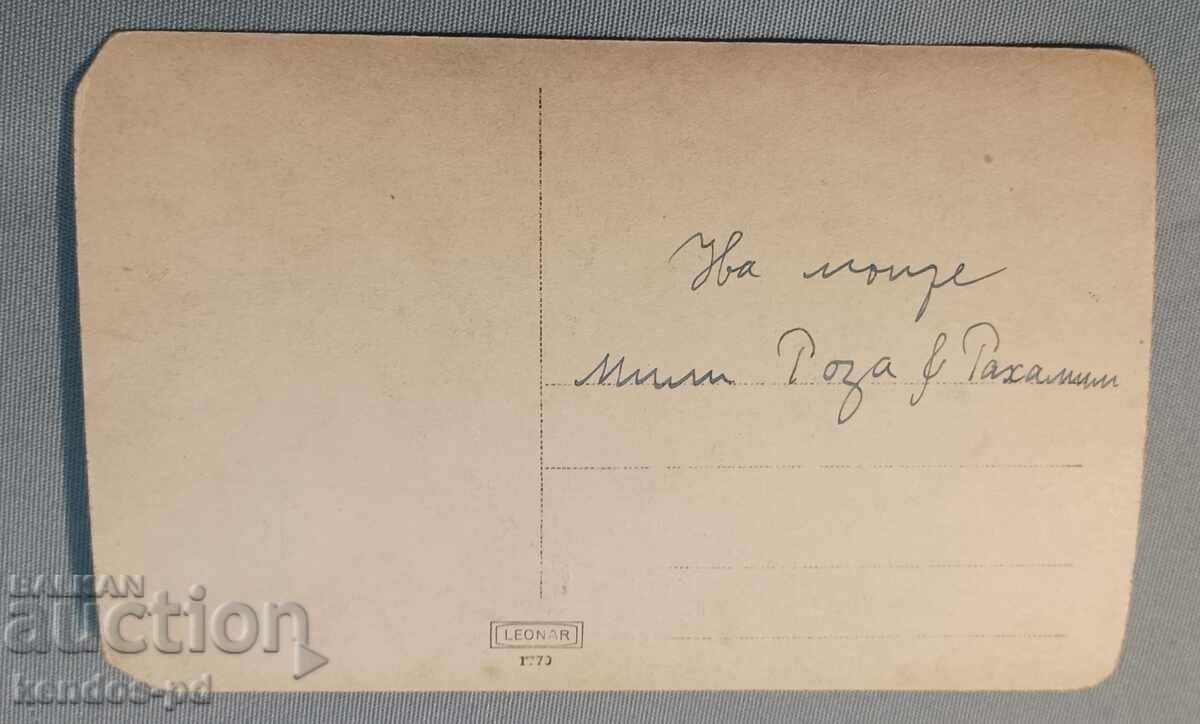 На моите
мили Роза и Рахамим
LEONAR
BALKAN
auction
kendos-pd